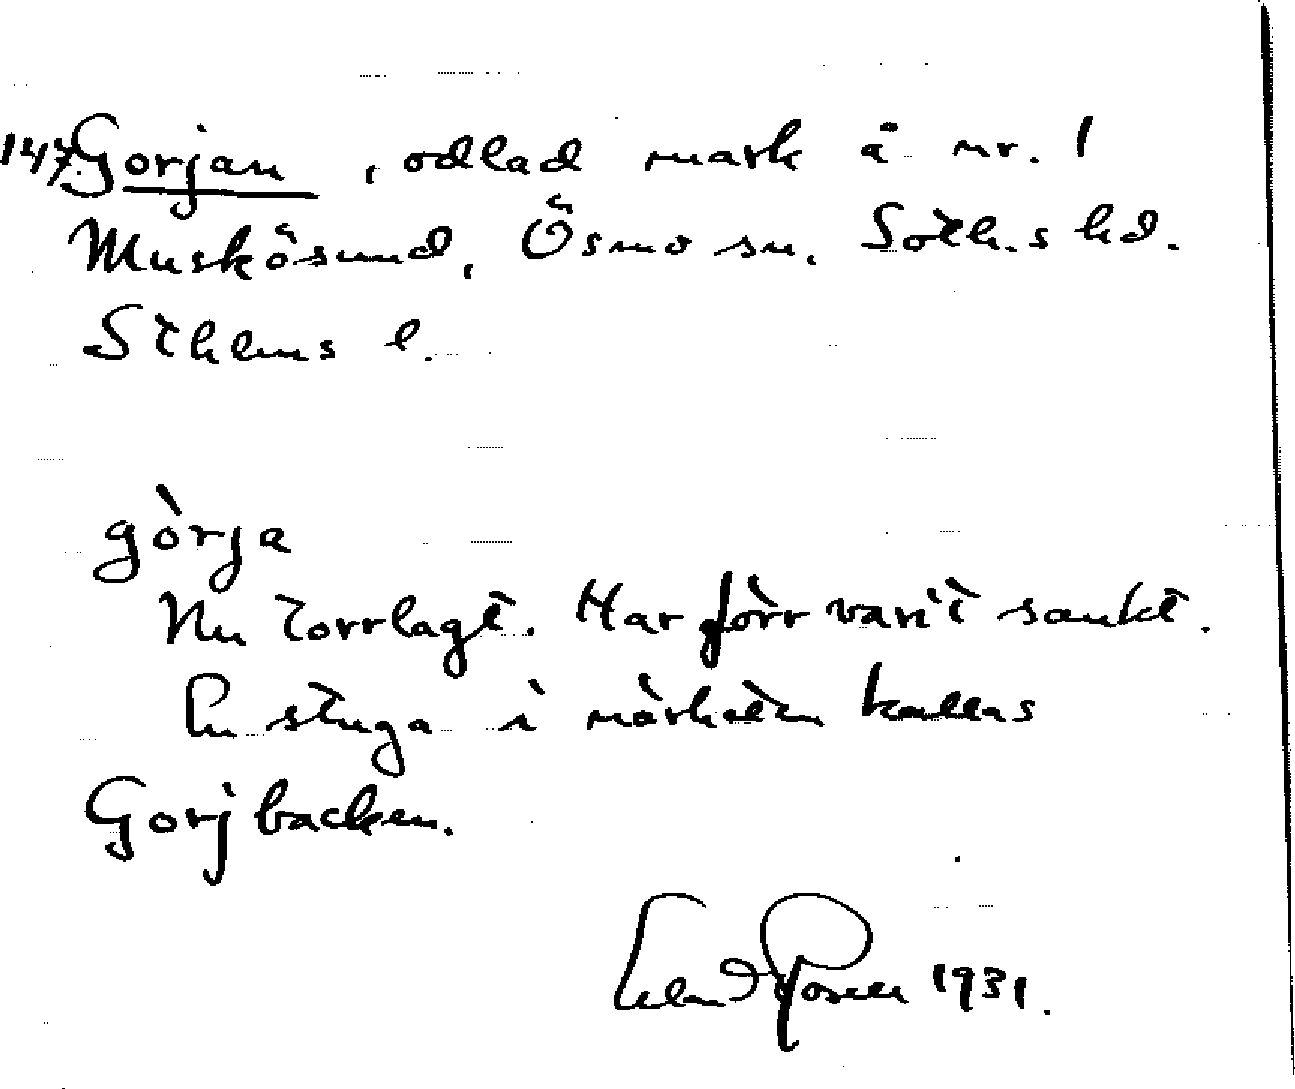 147 Gorjan, odlad mark å nr. 1
Muskösund, Ösmo sn. Soth.s hd.
Sthlms l.
gòrja
Nu torrlagt. Har förr vari't sankt.
En stuga i närheten kallas
Gorjbacken.
1931.